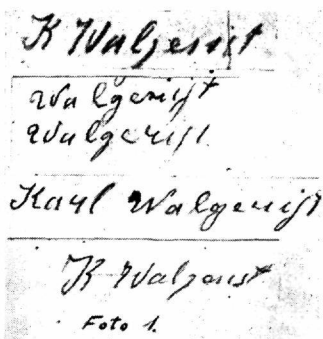 K Walgerist
Walgerist
Walgerist
Karl Walgerist
K Walgerist
Foto 1.